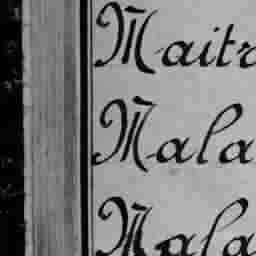 Maitr
Mala
Mala